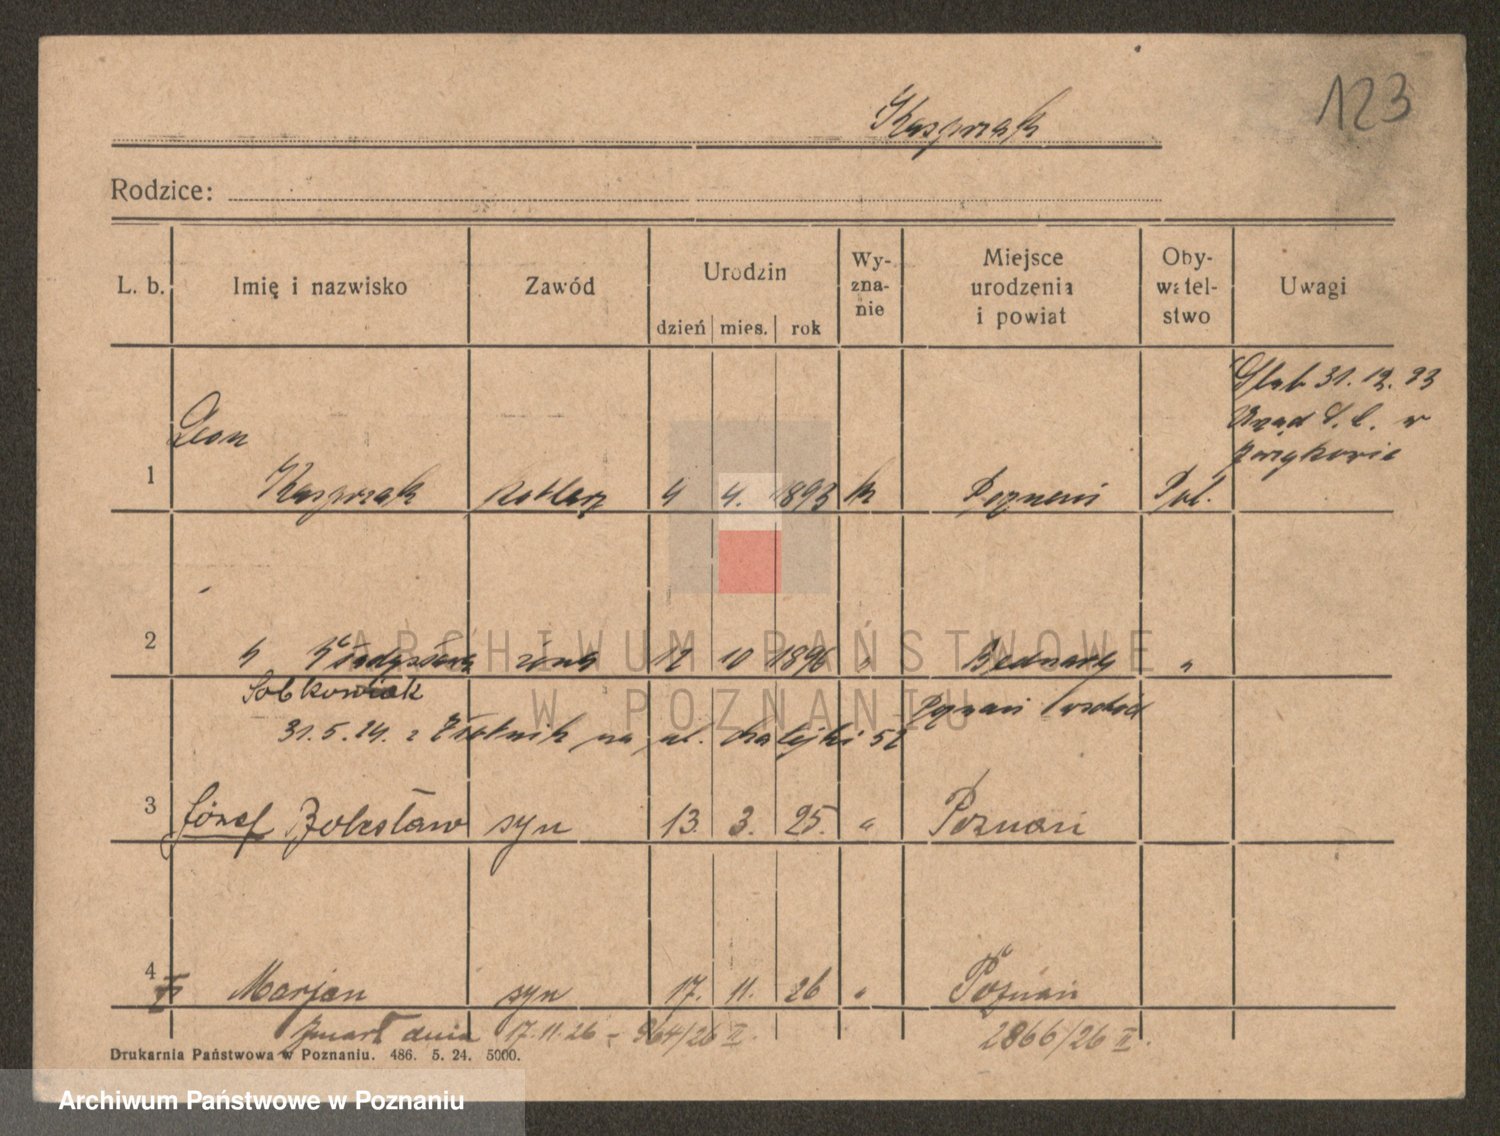 123
Kasprzak
Rodzice:
L. b. Imię i nazwisko Zawód Urodzin dzień mies. rok Wy-zna-nie Miejsce urodzenia i powiat Oby-watel-stwo Uwagi
Ślub 31. 12. 23
Urząd S. C. w
Leon
1 Kasprzak 4 4. 1893 kk Poznań Pol.
2 żona 12 10 1896 " Bednary "
Sobkowiak
Poznań wschód
31. 5. 24. z na ul. 52
3 Józef Bolesław syn 13. 3. 25. " Poznań
4 Marjan syn 17. 11. 26 " Poznań
zmarł dnia 17. 11. 26 - 964/26 II. 2866/26 II.
Drukarnia Państwowa w Poznaniu. 486. 5. 24. 5000.
ARCHIWUM PAŃSTWOWE
W POZNANIU
Archiwum Państwowe w Poznaniu